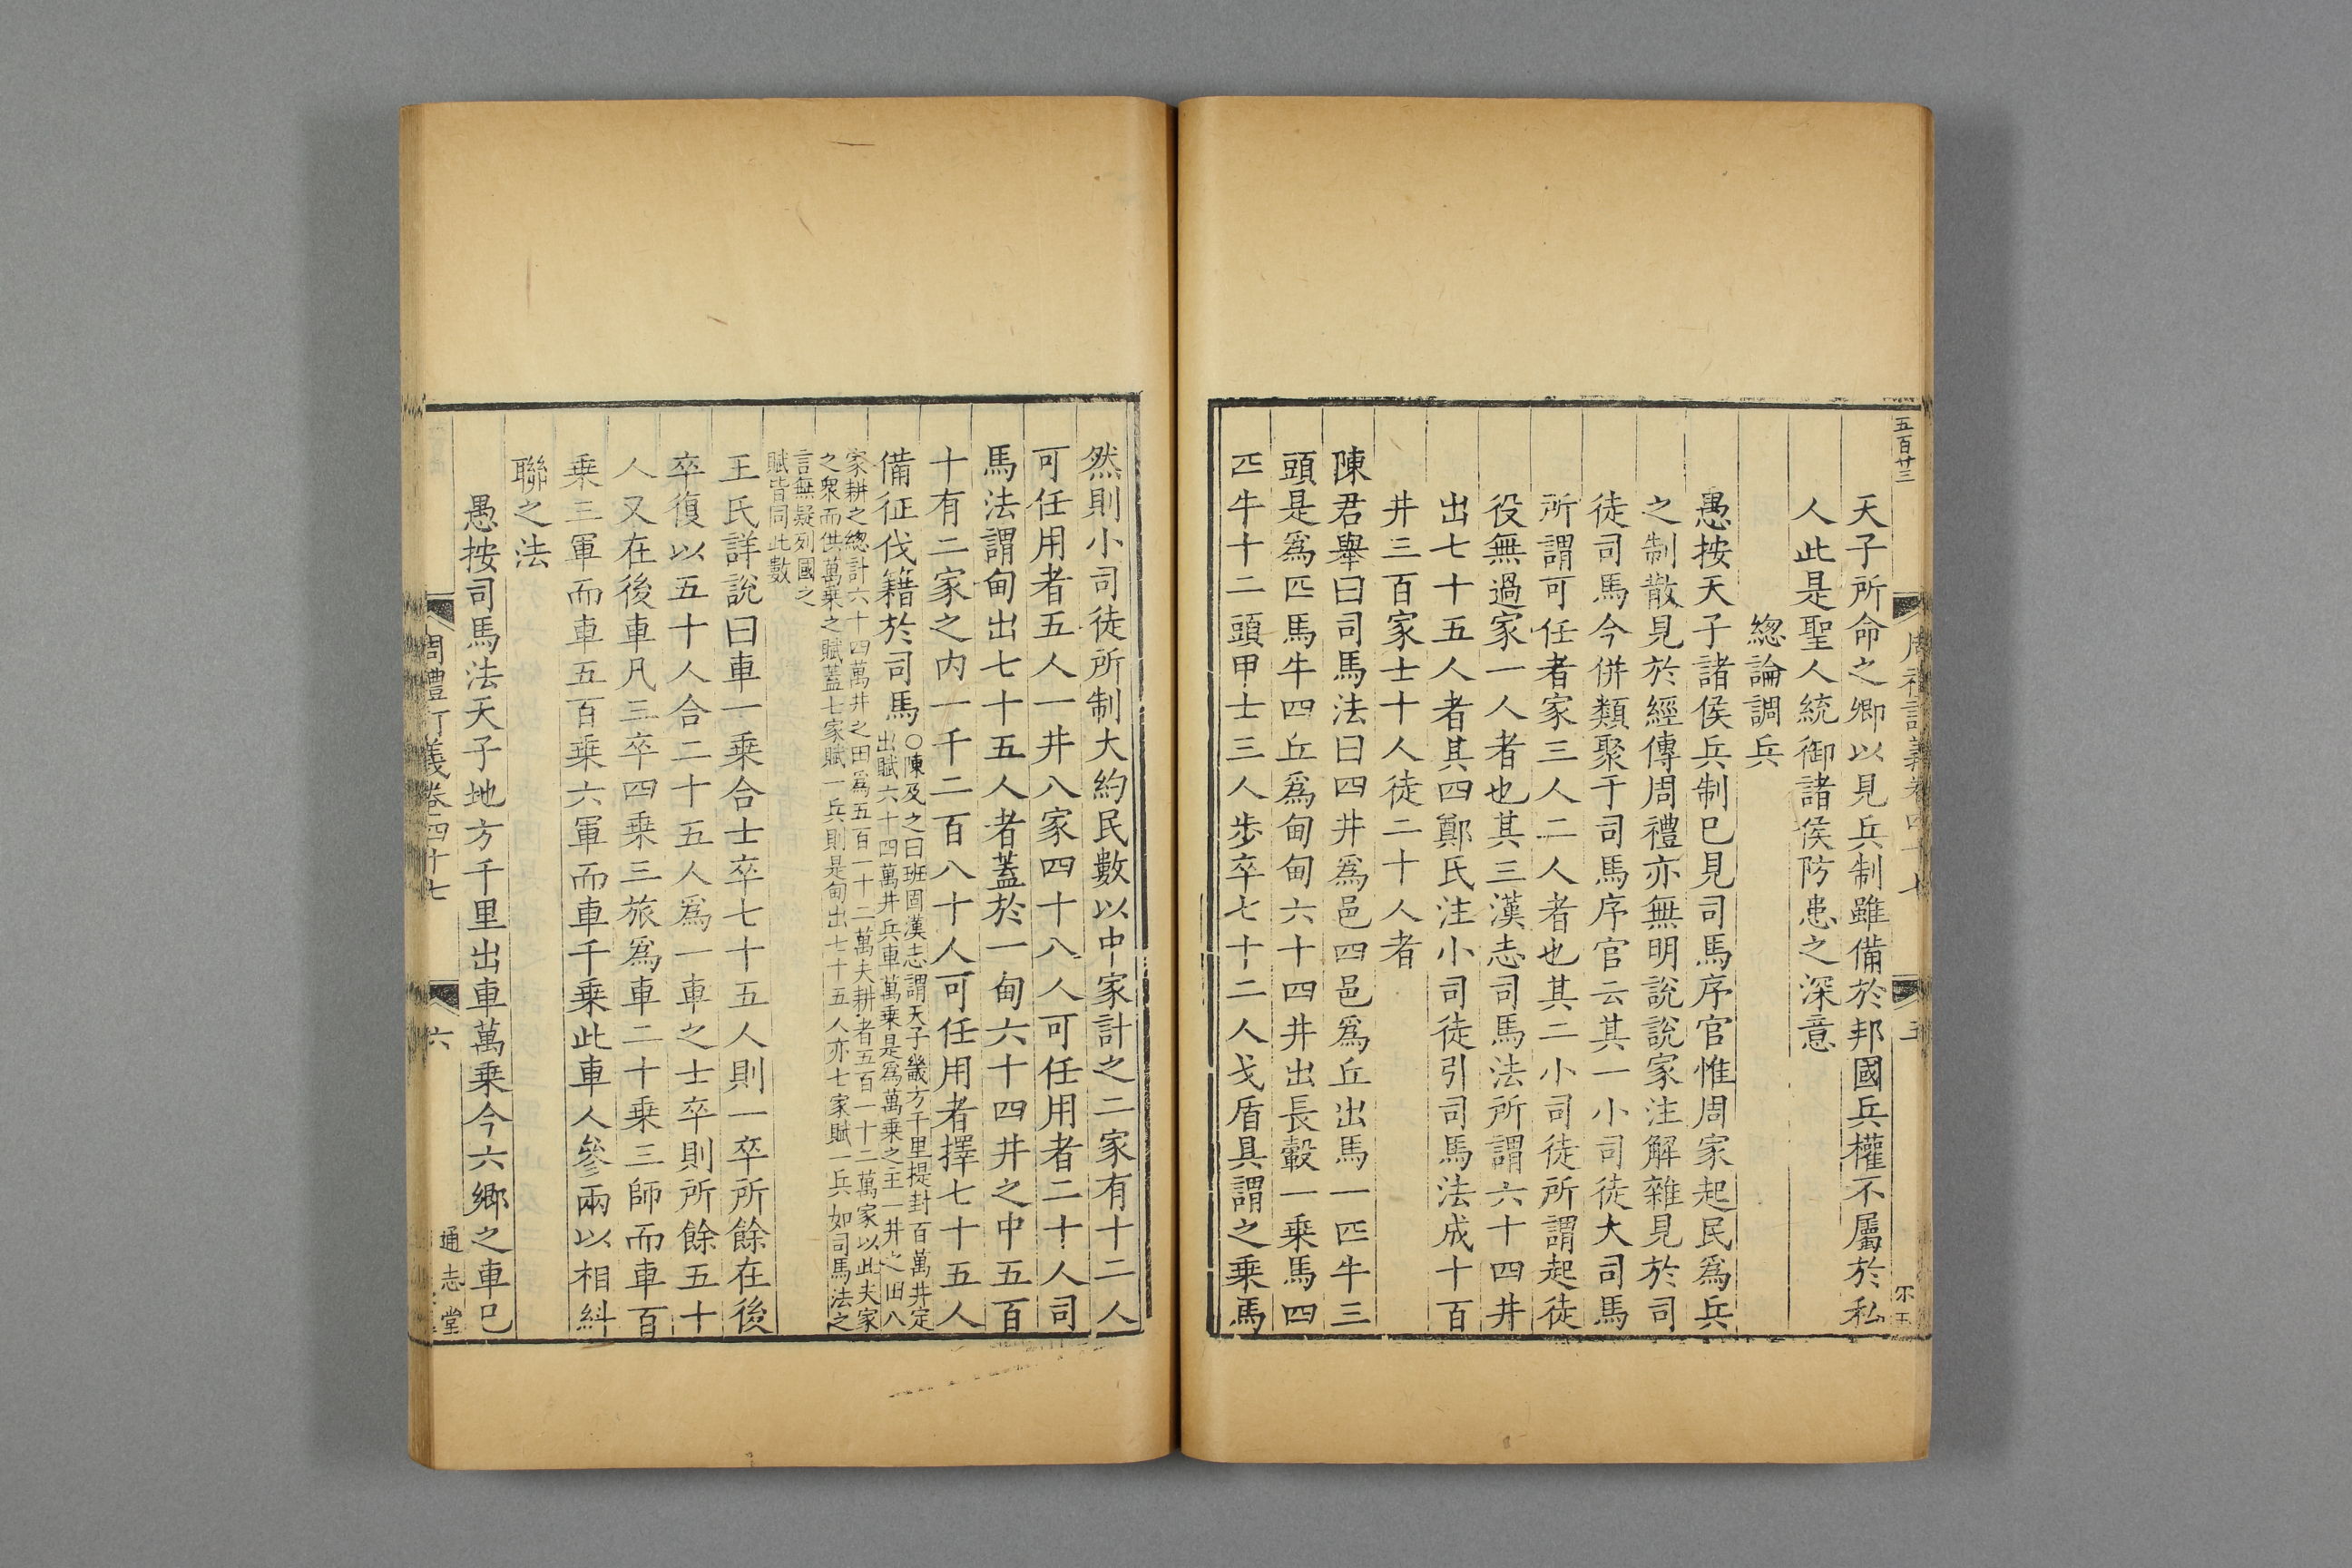 五百廿三
天子所命之卿以見兵制雖備於邦國兵權不屬於私
人此是聖人統御諸侯防患之深意
緫論調兵
愚按天子諸侯兵制已見司馬序官惟周家起民爲兵
之制散見於經傳周禮亦無明說說家注解雜見於司
徒司馬今併類聚于司馬序官云其一小司徒大司馬
所謂可任者家三人二人者也其二小司徒所謂起徒
役無過家一人者也其三漢志司馬法所謂六十四井
出七十五人者其四鄭氏注小司徒引司馬法成十百
井三百家士十人徒二十人者
陳君舉曰司馬法曰四井爲邑四邑爲丘出馬一匹牛三
頭是爲匹馬牛四丘爲甸甸六十四井出長轂一乗馬四
匹牛十二頭甲士三人歩卒七十二人戈盾具謂之乗馬
然則小司徒所制大約民數以中家計之二家有十二人
可任用者五人一井八家四十八人可任用者二十人司
馬法謂甸出七十五人者蓋於一甸六十四井之中五百
十有二家之内一千二百八十人可任用者擇七十五人
備征伐籍於司馬○陳及之曰班固漢志謂天子畿方千里提封百萬井定
出賦六十四萬井兵車萬乗是爲萬乗之主一井之田八
家耕之緫計六十四萬井之田爲五百一十二萬夫耕者五百一十二萬家以此夫家
之衆而供萬乗之賦蓋七家賦一兵則是甸出七十五人亦七家賦一兵如司馬法之
言無疑列國之
賦皆同此數
王氏詳說曰車一乗合士卒七十五人則一卒所餘在後
卒復以五十人合二十五人爲一車之士卒則所餘五十
人又在後車凡三卒四乗三旅爲車二十乗三師而車百
乗三軍而車五百乗六軍而車千乗此車人參兩以相糾
聯之法
愚按司馬法天子地方千里出車萬乗今六鄉之車已
周禮訂義卷四十七
六
通志堂